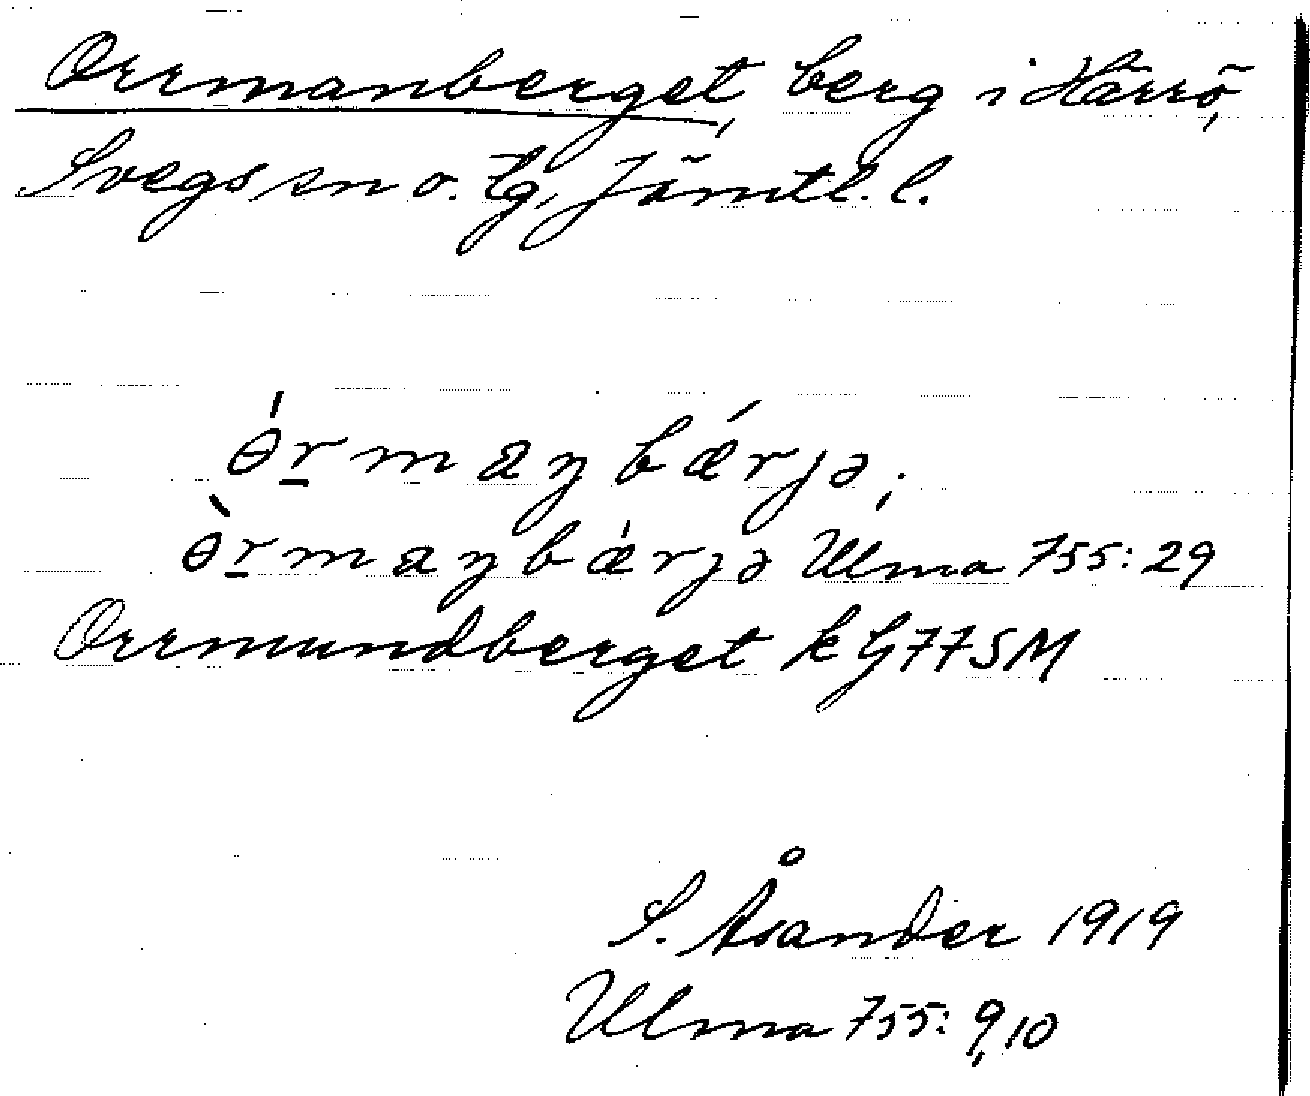 Orrmanberget, berg i Härrö,
Svegs sn o. tg, Jämtl. l.
ɵ́r̠maŋbǽrjə;
ɵ̀r̠maŋbǽrjə Ulma 755: 29
Orrmundberget k G77SM
S. Åsander 1919
Ulma 755: 9,10